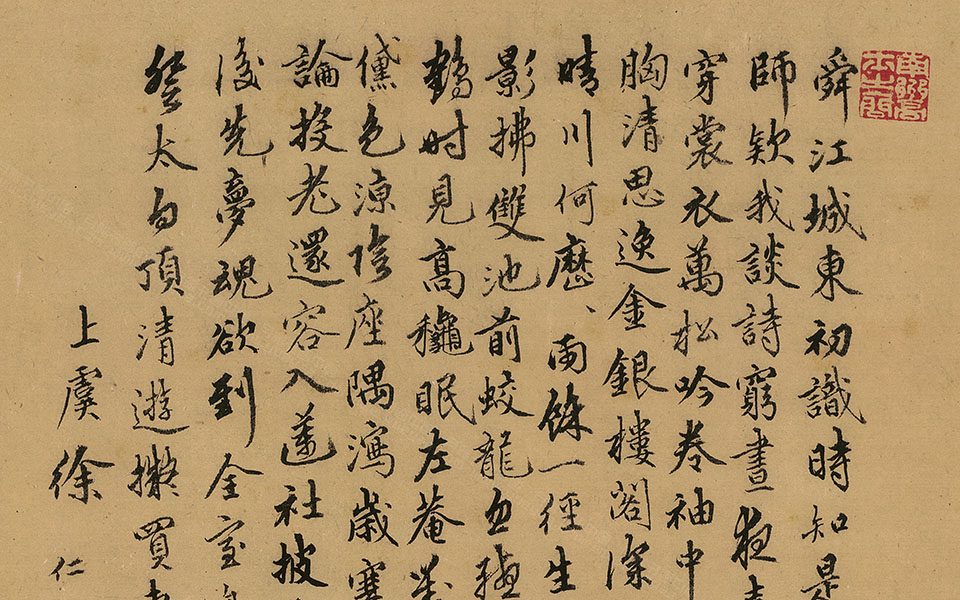 舜江城東初識時知是
師欵我談詩窮晝夜
穿裳衣萬松吟卷袖中
胸清思逸金銀樓閣深
晴川何歷、雨餘一徑生
影拂雙池前蛟龍忽
鶴时見高穐眠左菴
儻色凉陰座隅瀉歲寒
論投老還容入蓮社披
後先夢魂欲到全室
登太白頂清遊擬買
上虞徐 仁